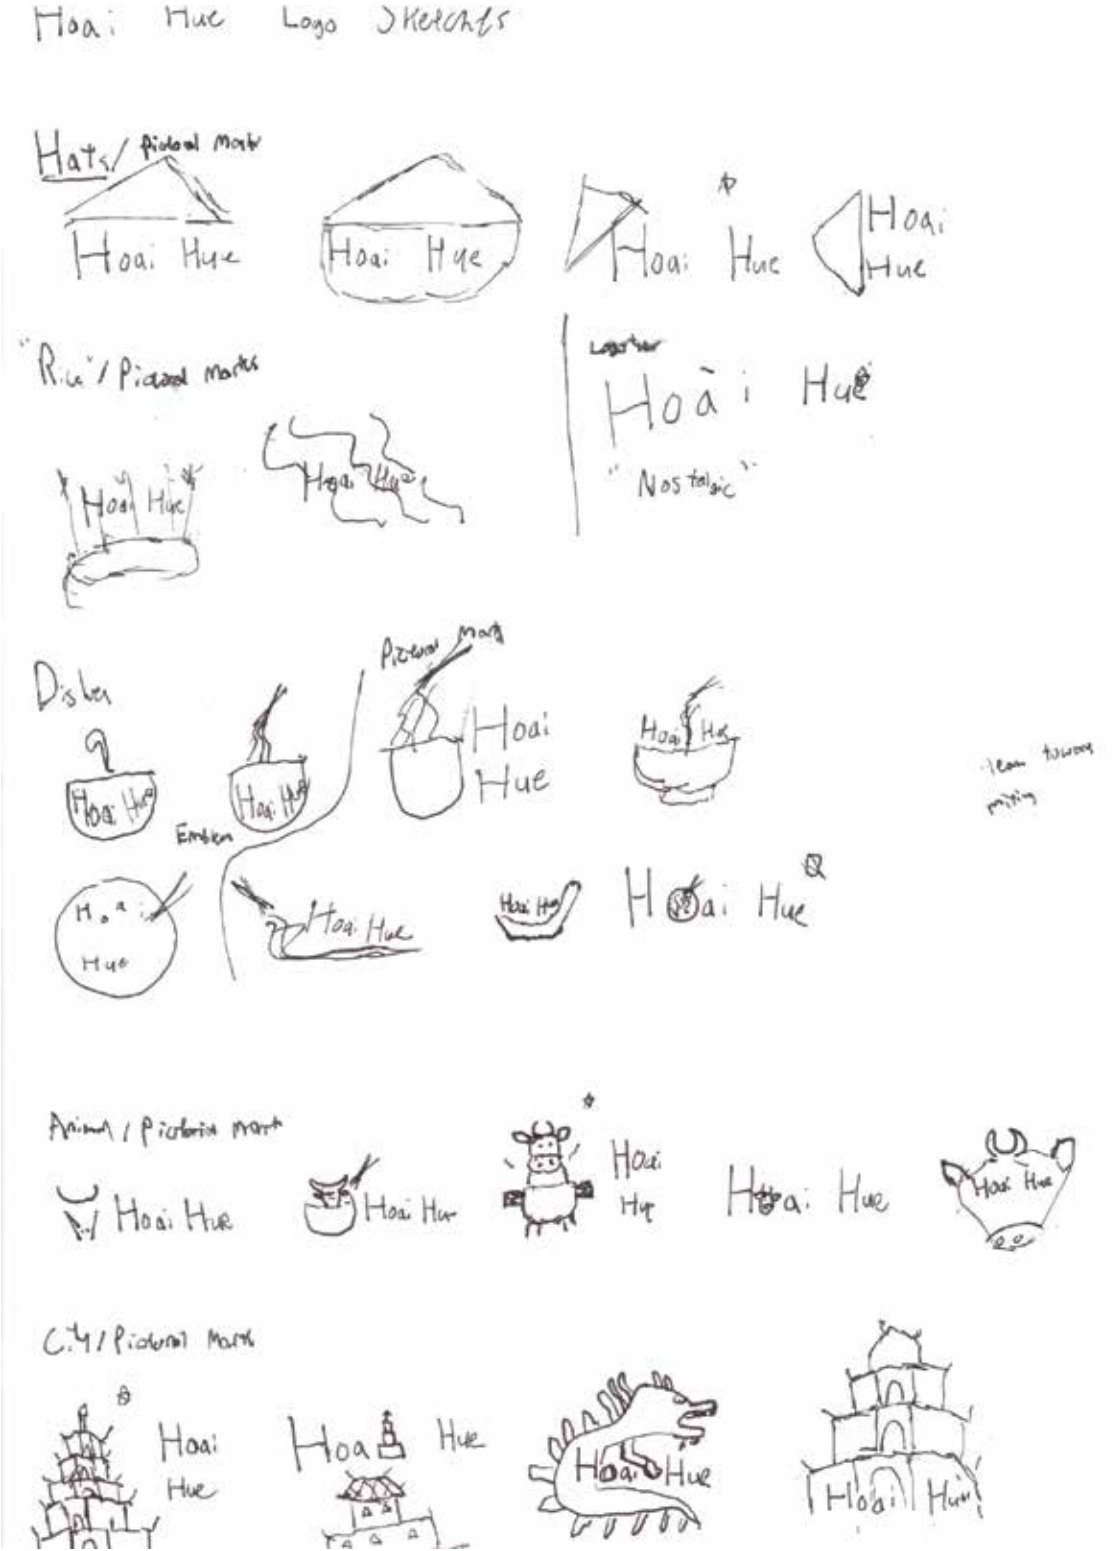 Hoai Hue Logo Sketches
Hats / pictoral mark
Hoai Hue
Hoai Hue
Hoai Hue
Hoai
Hue
"Rice" / Pictoral marks
Hoai Hue
Hoai Hue
Hoài Hue
"Nostalgic"
Dishes
Hoai Hue
Hoai Hue
Emblem
Pictoral mark
Hoai
Hue
Hoai Hue
Hoai
Hue
Hoai Hue
Hoai Hue
H ai Hue
Animal / Pictorial mark
Hoai Hue
Hoai Hue
Hoai
Hue
H ai Hue
Hoai Hue
City / Pictoral mark
Hoai
Hue
Hoa Hue
Hoai Hue
Hoai Hue